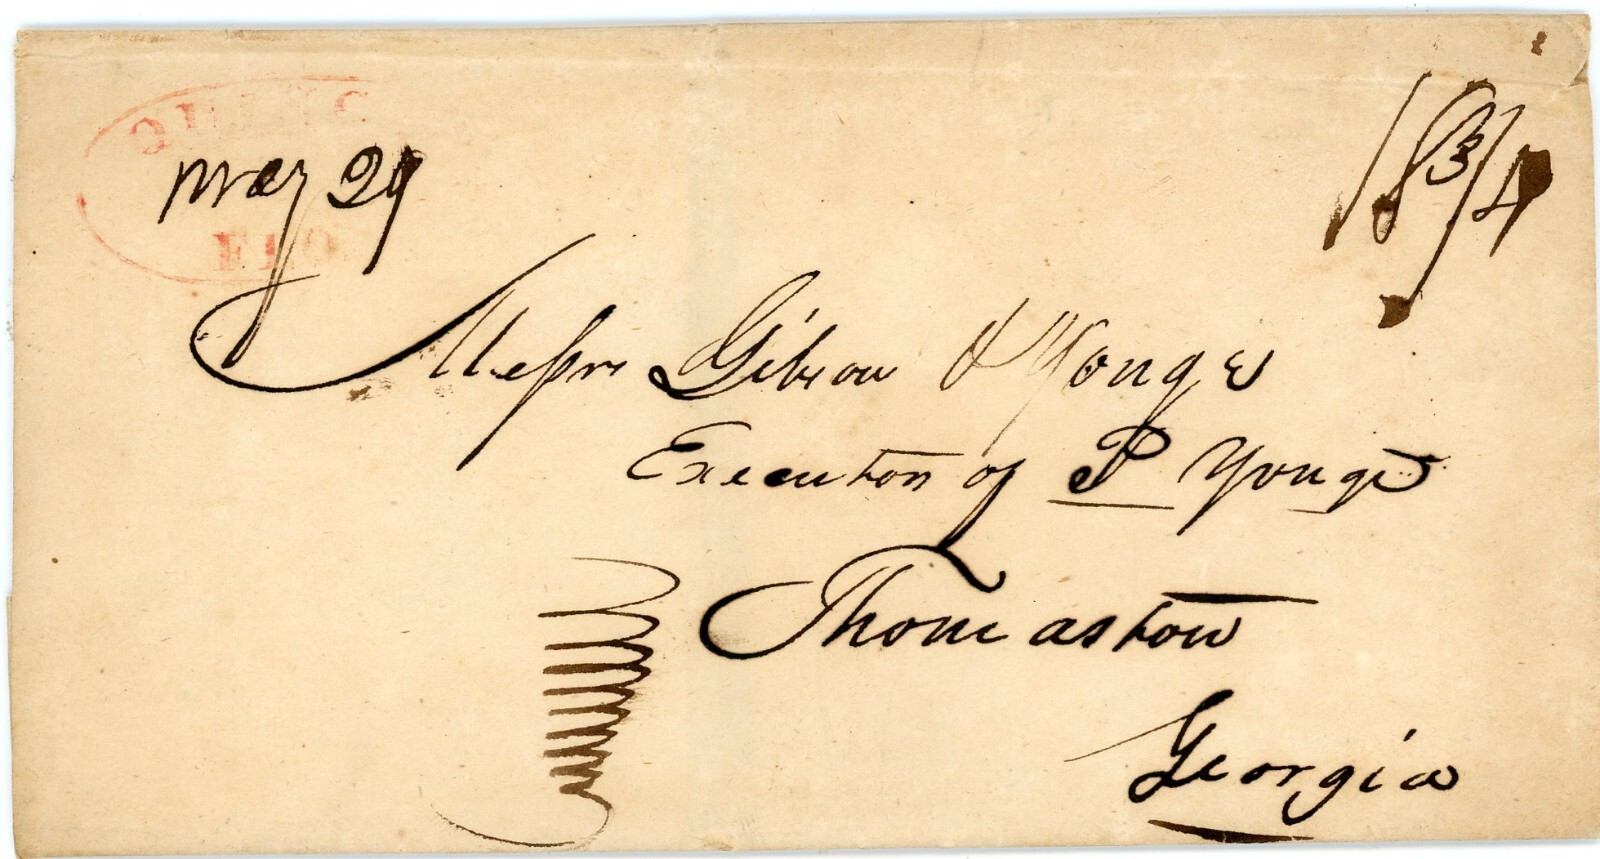 QUINC
May 29
Flo
18 3/4
Messrs Gibson & Yonge
Executors of P Yonge
Thomaston
Georgia